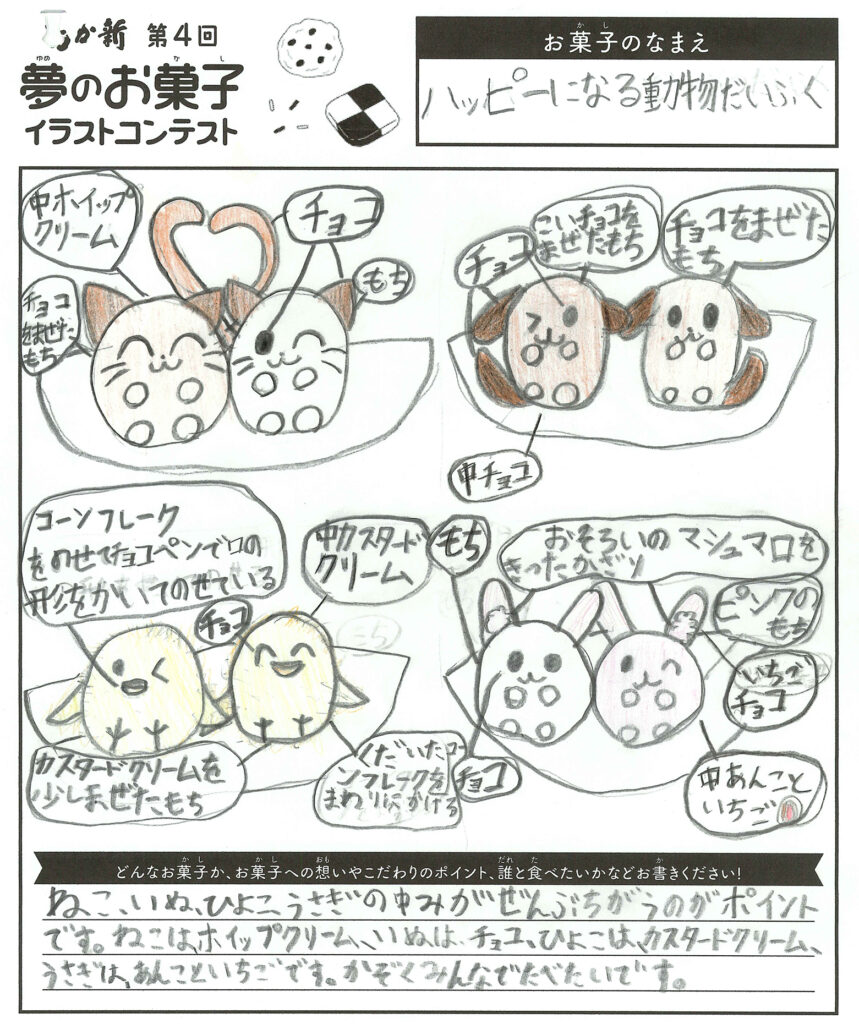 か新 第4回
夢のお菓子
イラストコンテスト
お菓子のなまえ
ハッピーになる動物だいふく
中ホイップ
クリーム
チョコ
もち
チョコ
をまぜた
もち
チョコ
こいチョコを
まぜたもち
チョコをまぜた
もち
中チョコ
コーンフレーク
をのせてチョコペンで口の
形をかいてのせている
チョコ
中カスタード
クリーム
カスタードクリームを
少しまぜたもち
くだいたコー
ンフレークを
まわりにかける
もち
おそろいのマシュマロを
きったかざり
ピンクの
もち
いちご
チョコ
チョコ
中あんこと
いちご
どんなお菓子か、お菓子への想いやこだわりのポイント、誰と食べたいかなどお書きください!
ねこ、いぬ、ひよこ、うさぎの中みがぜんぶちがうのがポイント
です。ねこは、ホイップクリーム、いぬは、チョコ、ひよこは、カスタードクリーム、
うさぎは、あんこといちごです。かぞくみんなでたべたいです。